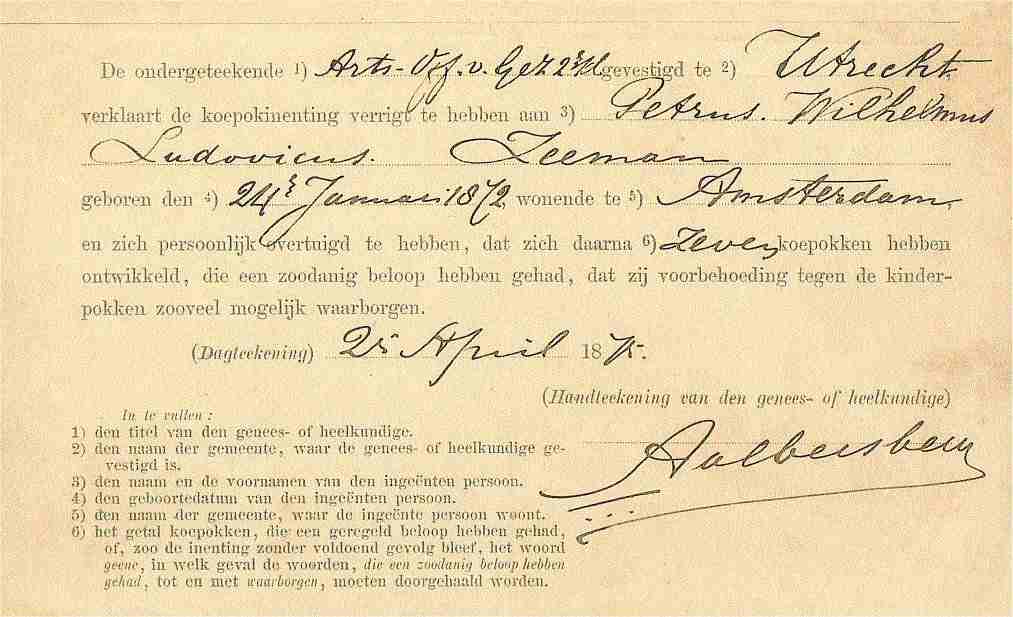 De ondergeteekende 1) Arts-Off. v. Gez 2e kl gevestigd te 2) Utrecht.
verklaart de koepokinenting verrigt te hebben aan 3) Petrus. Wilhelmus
Ludovicus. Zeeman
geboren den 4) 24e Januari 1872 wonende te 5) Amsterdam,
en zich persoonlijk overtuigd te hebben, dat zich daarna 6) Zeven koepokken hebben
ontwikkeld, die een zoodanig beloop hebben gehad, dat zij voorbehoeding tegen de kinder-
pokken zooveel mogelijk waarborgen.
(Dagteekening) April 1875.
(Handteekening van den genees- of heelkundige)
Aalbersberg
In te vullen:
1) den titel van den genees- of heelkundige.
2) den naam der gemeente, waar de genees- of heelkundige ge-
vestigd is.
3) den naam en de voornamen van den ingeënten persoon.
4) den geboortedatum van den ingeënten persoon.
5) den naam der gemeente, waar de ingeënte persoon woont.
6) het getal koepokken, die een geregeld beloop hebben gehad,
of, zoo de inenting zonder voldoend gevolg bleef, het woord
geene, in welk geval de woorden, die een zoodanig beloop hebben
gehad, tot en met waarborgen, moeten doorgehaald worden.